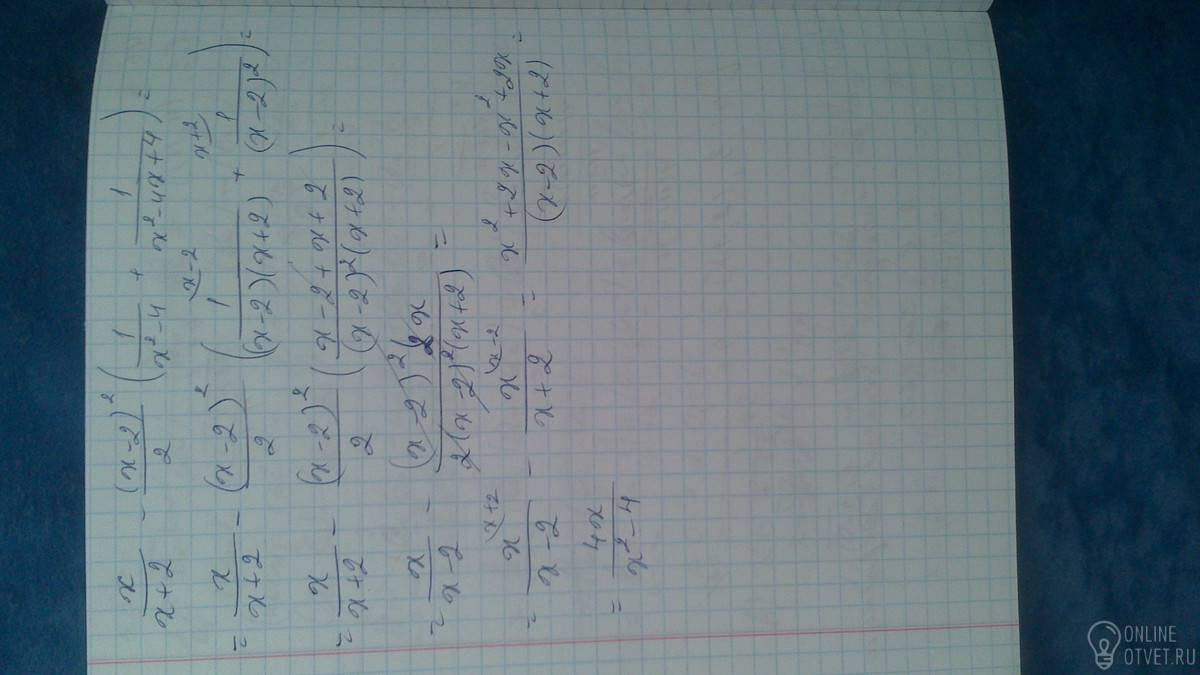 x/(x+2) - (x-2)²/2 (1/(x²-4) + 1/(x²-4x+4)) =
= x/(x+2) - (x-2)²/2 (1\x-2/((x-2)(x+2)) + 1\x+2/((x-2)²)) =
= x/(x+2) - (x-2)²/2 ((x-2+x+2)/((x-2)²(x+2))) =
= x/(x-2) - (x-2)²2x/(2(x-2)²(x+2)) =
= x\x+2/(x-2) - x\x-2/(x+2) = (x²+2x-x²+2x)/((x-2)(x+2)) =
= 4x/(x²-4)
ONLINE
OTVET.RU